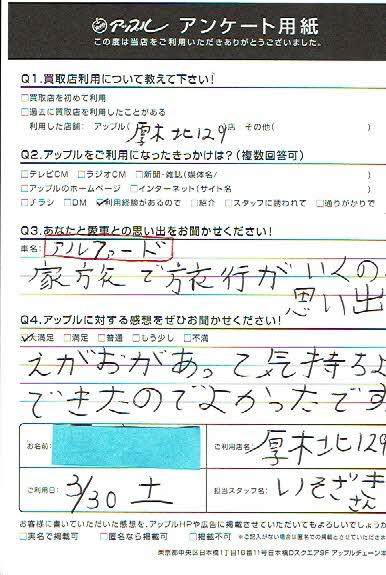 アップル アンケート用紙
この度は当店をご利用いただきありがとうございました。
Q1.買取店利用について教えて下さい!
□買取店を初めて利用
□過去に買取店を利用したことがある
利用した店舗: アップル( 厚木北129 店 その他(
Q2.アップルをご利用になったきっかけは?(複数回答可)
□テレビCM □ラジオCM □新聞・雑誌(媒体名/
□アップルのホームページ □インターネット(サイト名
□チラシ □DM ☑利用経験があるので □紹介 □スタッフに誘われて □通りがかりで
Q3.あなたと愛車との思い出をお聞かせください!
車名: アルファード
家族で旅行がいくの
思い出
Q4.アップルに対する感想をぜひお聞かせください!
☑大満足 □満足 □普通 □もう少し □不満
えがおがあって気持ちよ
できたのでよかったです
お名前:
ご利用店名: 厚木北129
ご利用日: 3/30 土
担当スタッフ名: いそざきさん
お客様に書いていただいた感想を、アップルHPや広告に掲載させていただいてもよろしいでしょうか
□実名で掲載可 □匿名なら掲載可 □掲載不可 ※ご記入がない場合は匿名での掲載とさせていただきま
東京都中央区日本橋1丁目16番11号日本橋Dスクエア9F アップルチェーン本